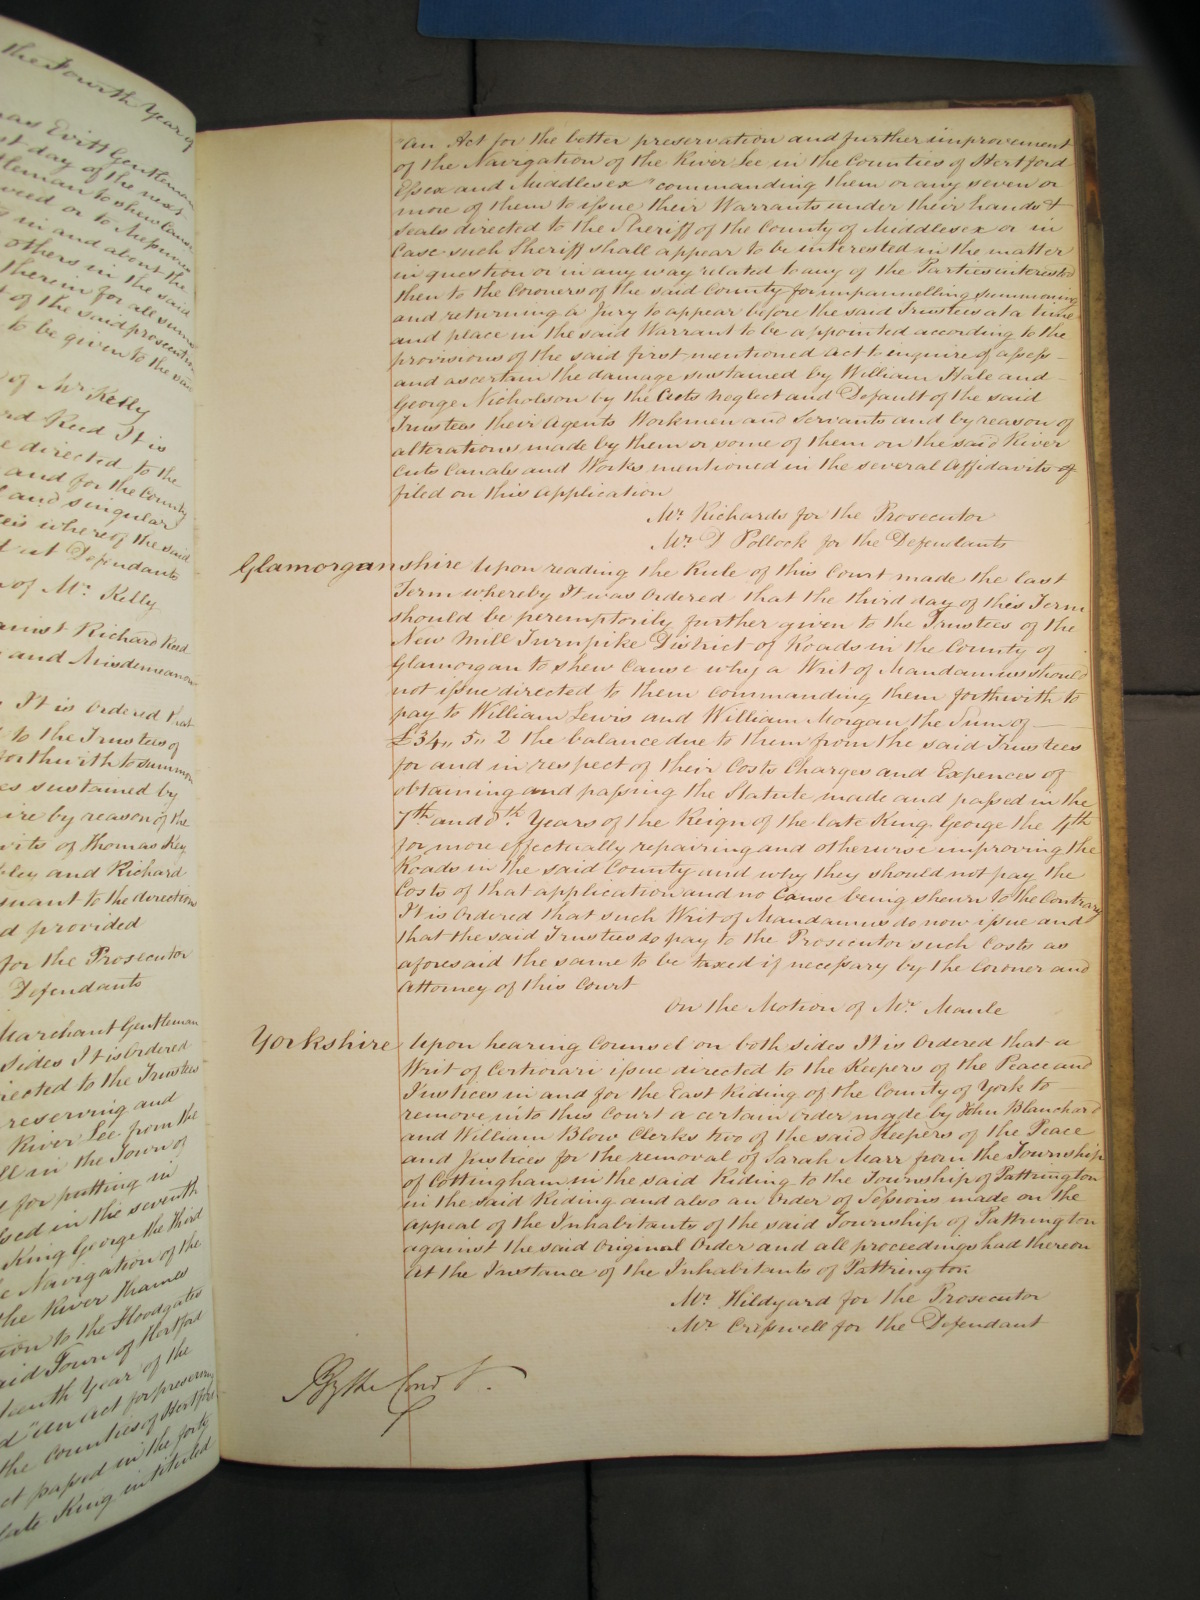 the Fourth Year of
mas Evitt Gentleman
st day of the next
tleman to shew cause
in and about the
others in the said
therein for all summ
of the said prosecution
to be given to the said
of Mr. Kelly
rd Reed It is
e directed to the
and for the County
l and singular
whereof the said
Defendants
of Mr. Kelly
ainst Richard Reed
and Misdemeanor
It is Ordered that
to the Trustees of
forthwith to summon
es sustained by
ire by reason of the
vits of Thomas Key
bley and Richard
suant to the direction
d provided
for the Prosecutor
Defendants
Marchant Gentleman
sides It is Ordered
irected to the Trustees
reserving and
River Lee from the
ll in the Town of
for putting in
ssed in the seventh
King George the Third
e Navigation of the
the River Thames
ion to the Floodgates
said Town of Hertford
Year of the
d "an Act for preserving
the Counties of Hertford
ct passed in the forty
late King intituled
"an Act for the better preservation and further improvement
of the Navigation of the River Lee in the Counties of Hertford
Essex and Middlesex" commanding them or any seven or
more of them to issue their Warrants under their hands &
Seals directed to the Sheriff of the County of Middlesex or in
Case such Sheriff shall appear to be interested in the matter
in question or in any way related to any of the Parties interested
then to the Coroners of the said County for impannelling summoning
and returning a Jury to appear before the said Trustees at a time
and place in the said Warrant to be appointed according to the
provisions of the said first mentioned Act to inquire of assess
and ascertain the damage sustained by William Hale and
George Nicholson by the Acts Neglect and Default of the said
Trustees their Agents Workmen and Servants and by reason of
alterations made by them or some of them on the said River
Cuts Canals and Works mentioned in the several Affidavits of
filed on this application
Mr. Richards for the Prosecutor
Mr. D Pollock for the Defendants
Glamorganshire Upon reading the Rule of this Court made the last
Term whereby It was Ordered that the third day of this Term
should be peremptorily further given to the Trustees of the
New Mill Turnpike District of Roads in the County of
Glamorgan to shew Cause why a Writ of Mandamus should
not issue directed to them commanding them forthwith to
pay to William Lewis and William Morgan the Sum of
£34,, 5,, 2 the balance due to them from the said Trustees
for and in respect of their Costs Charges and Expences of
obtaining and passing the Statute made and passed in the
7th and 8th. Years of the Reign of the late King George the 4th
for more effectually repairing and otherwise improving the
Roads in the said County and why they should not pay the
Costs of that application and no Cause being shewn to the Contrary
It is Ordered that such Writ of Mandamus do now issue and
that the said Trustees do pay to the Prosecutor such Costs as
aforesaid the same to be taxed if necessary by the Coroner and
Attorney of this Court
On the Motion of Mr. Maule
Yorkshire Upon hearing Counsel on both sides It is Ordered that a
Writ of Certiorari issue directed to the Keepers of the Peace and
Justices in and for the East Riding of the County of York to
remove into this Court a certain Order made by John Blanchard
and William Blow Clerks two of the said Keepers of the Peace
and Justices for the removal of Sarah Marr from the Township
of Cottingham in the said Riding to the Township of Pattrington
in the said Riding and also an Order of Sessions made on the
appeal of the Inhabitants of the said Township of Pattrington
against the said Original Order and all proceedings had thereon
At the Instance of the Inhabitants of Pattrington
Mr. Hildyard for the Prosecutor
Mr. Cresswell for the Defendant